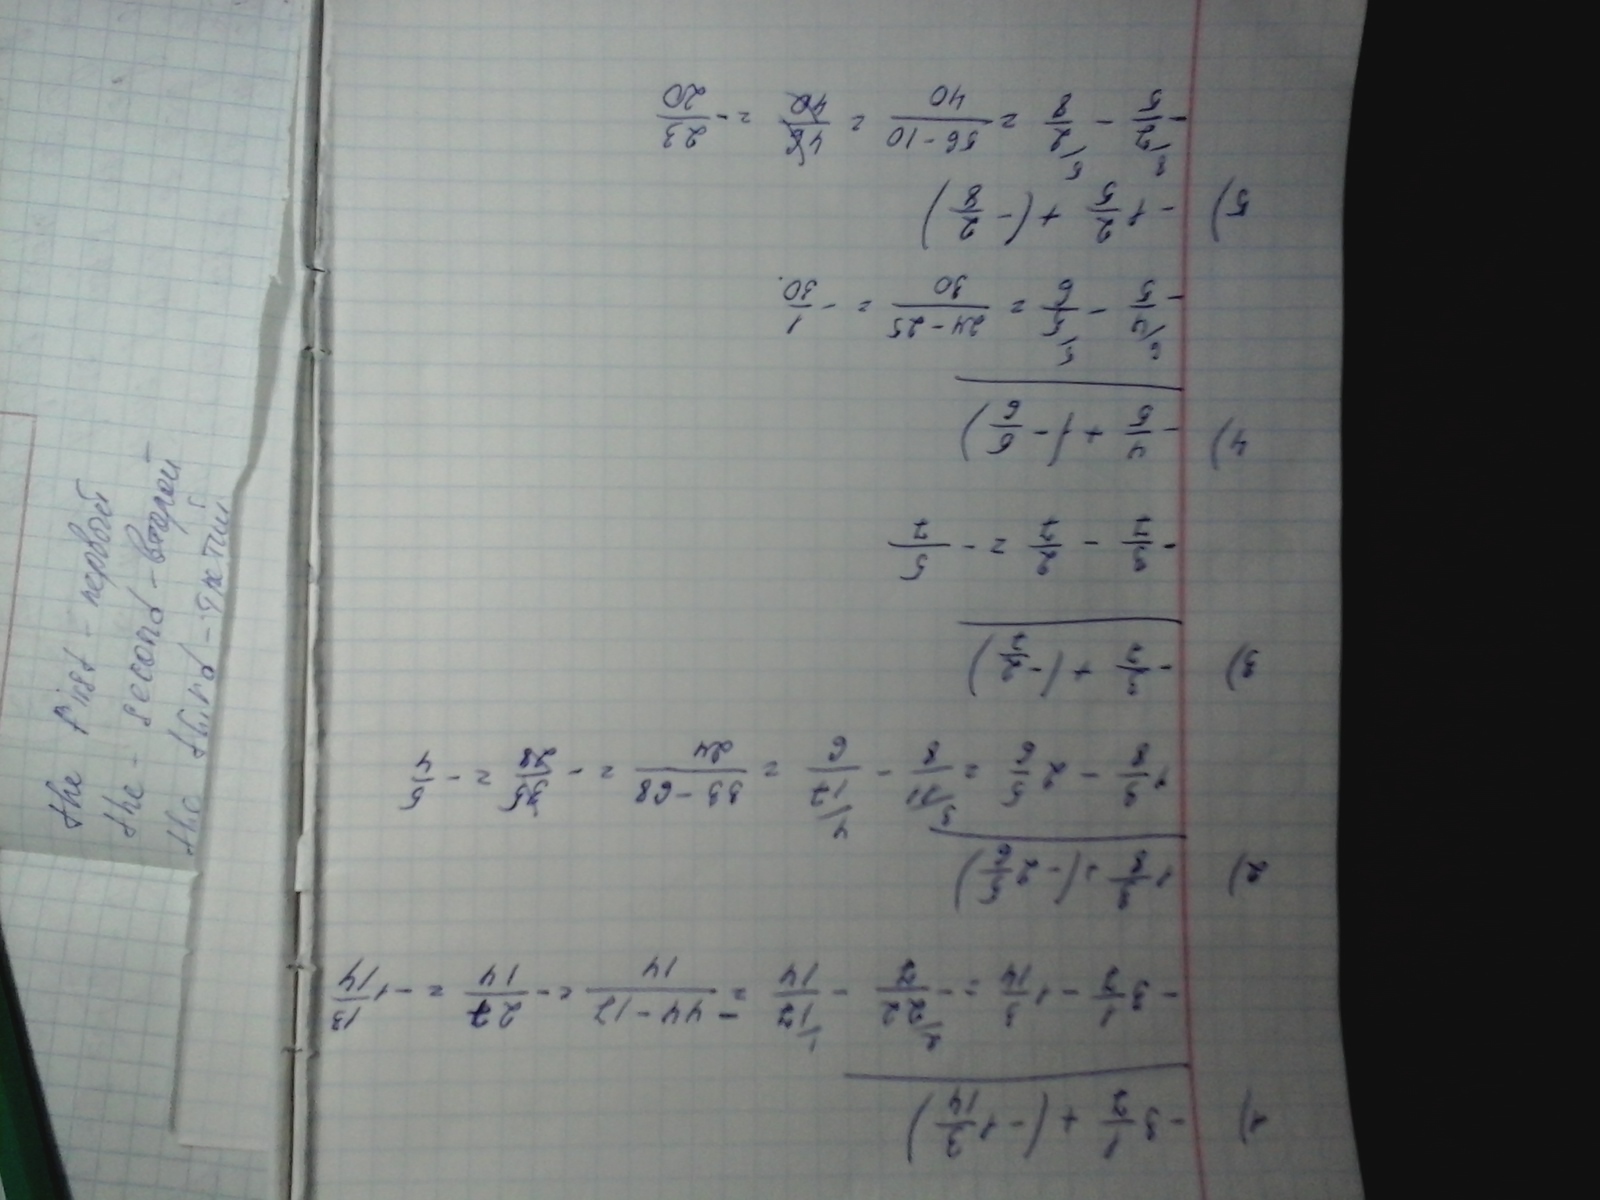 1) -3 1/7 + (-1 3/14)
-3 1/7 - 1 3/14 = - 22/7 - 17/14 = -44-17/14 = - 27/14 = -1 13/14
2) 1 3/8 + (-2 5/6)
1 3/8 - 2 5/6 = 11/8 - 17/6 = 33-68/24 = - 35/28 = - 5/4
3) - 3/7 + (- 2/7)
- 3/7 - 2/7 = - 5/7
4) - 4/5 + (- 5/6)
- 4/5 - 5/6 = 24-25/30 = - 1/30.
5) -1 2/5 + (- 2/8)
- 7/5 - 2/8 = 56-10/40 = 46/40 = - 23/20
the first - первый
the - second - второй
the third - третий